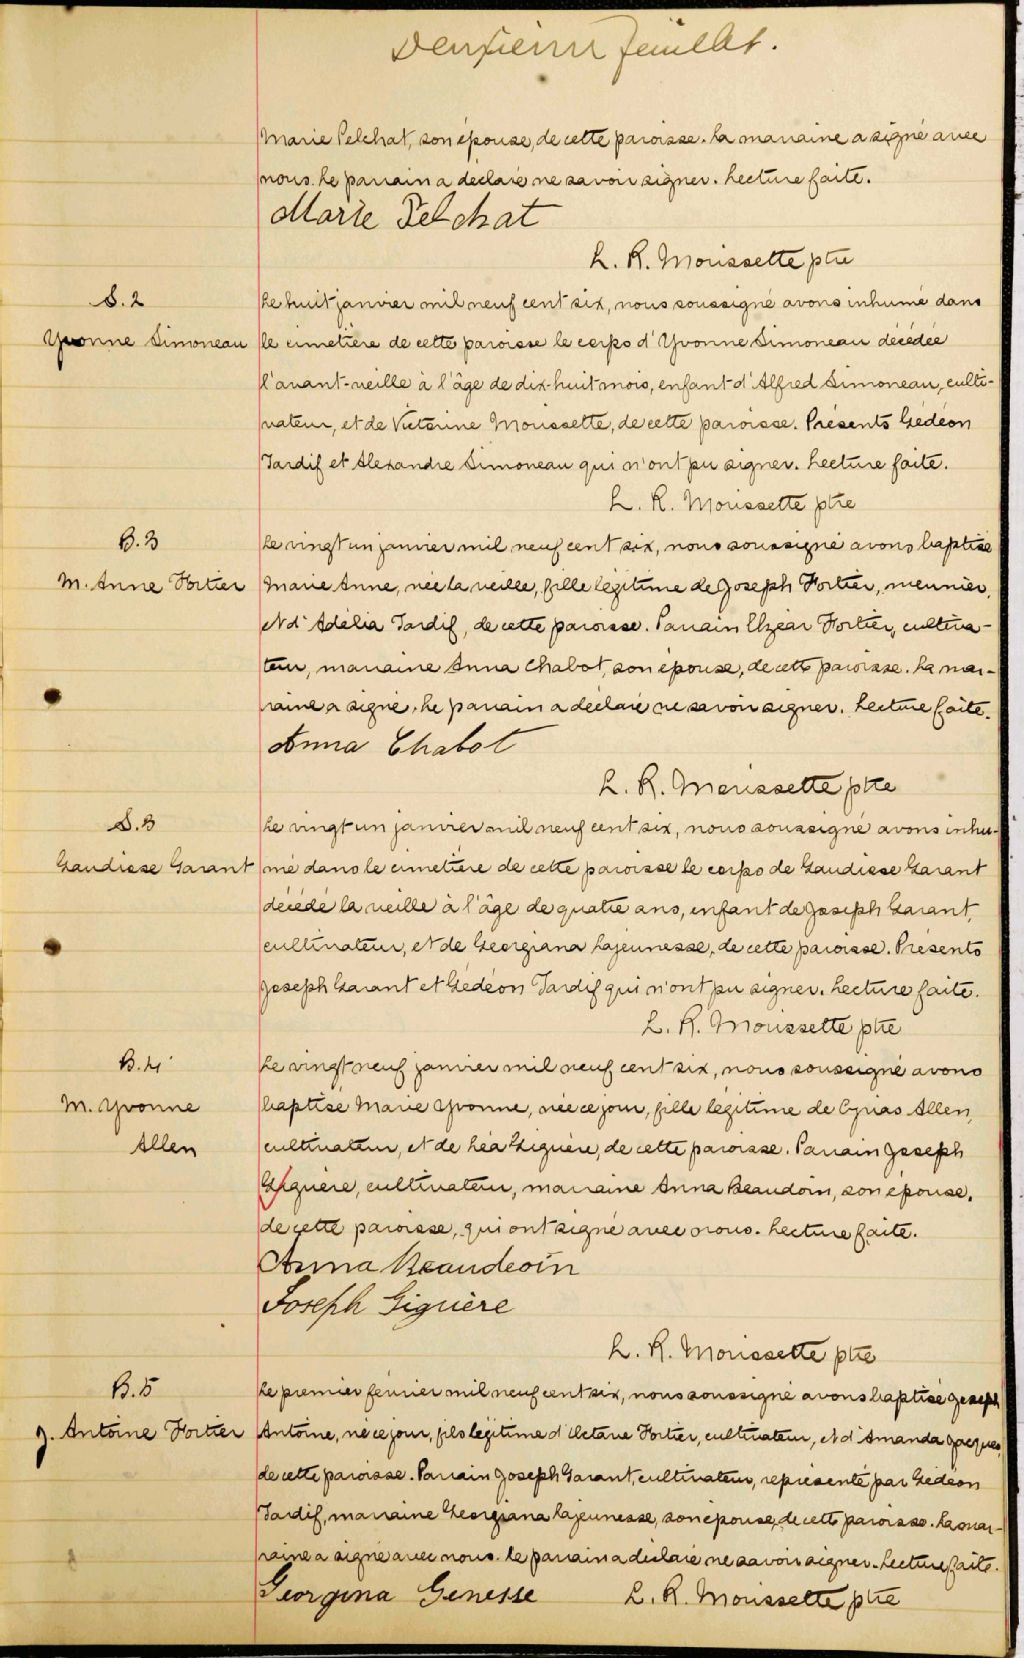 Deuxième feuillet.
Marie Pelchat, son épouse, de cette paroisse. La marraine a signé avec
nous. Le parrain a déclaré ne savoir signer. Lecture faite.
Marie Pelchat
L. R. Morissette ptre
S. 2
Yvonne Simoneau
Le huit janvier mil neuf cent six, nous soussigné avons inhumé dans
le cimetière de cette paroisse le corps d'Yvonne Simoneau décédée
l'avant-veille à l'âge de dix-huit mois, enfant d'Alfred Simoneau, culti-
vateur, et de Victorine Morissette, de cette paroisse. Présents Gédéon
Tardif et Alexandre Simoneau qui n'ont pu signer. Lecture faite.
L. R. Morissette ptre
B. 3
M. Anne Fortier
Le vingt un janvier mil neuf cent six, nous soussigné avons baptisé
Marie Anne, née la veille, fille légitime de Joseph Fortier, meunier,
et d'Adélia Tardif, de cette paroisse. Parrain Elzéar Fortier, cultiva-
teur, marraine Anna Chabot, son épouse, de cette paroisse. La mar-
raine a signé. Le parrain a déclaré ne savoir signer. Lecture faite.
Anna Chabot
L. R. Morissette ptre
S. 3
Gaudiose Garant
Le vingt un janvier mil neuf cent six, nous soussigné avons inhu-
mé dans le cimetière de cette paroisse le corps de Gaudiose Garant
décédé la veille à l'âge de quatre ans, enfant de Joseph Garant,
cultivateur, et de Georgiana Lajeunesse, de cette paroisse. Présents
Joseph Garant et Gédéon Tardif qui n'ont pu signer. Lecture faite.
L. R. Morissette ptre
B. 4
M. Yvonne
Allen
Le vingt neuf janvier mil neuf cent six, nous soussigné avons
baptisé Marie Yvonne, née ce jour, fille légitime de Cyrias Allen,
cultivateur, et de Léa Giguère, de cette paroisse. Parrain Joseph
Giguère, cultivateur, marraine Anna Beaudoin, son épouse,
de cette paroisse, qui ont signé avec nous. Lecture faite.
Anna Beaudeoin
Joseph Giguère
L. R. Morissette ptre
B. 5
J. Antoine Fortier
Le premier février mil neuf cent six, nous soussigné avons baptisé Joseph
Antoine, né ce jour, fils légitime d'Octave Fortier, cultivateur, et d'Amanda Jacques,
de cette paroisse. Parrain Joseph Garant, cultivateur, représenté par Gédéon
Tardif, marraine Georgiana Lajeunesse, son épouse, de cette paroisse. La mar-
raine a signé avec nous. Le parrain a déclaré ne savoir signer. Lecture faite.
Georgina Genesse
L. R. Morissette ptre